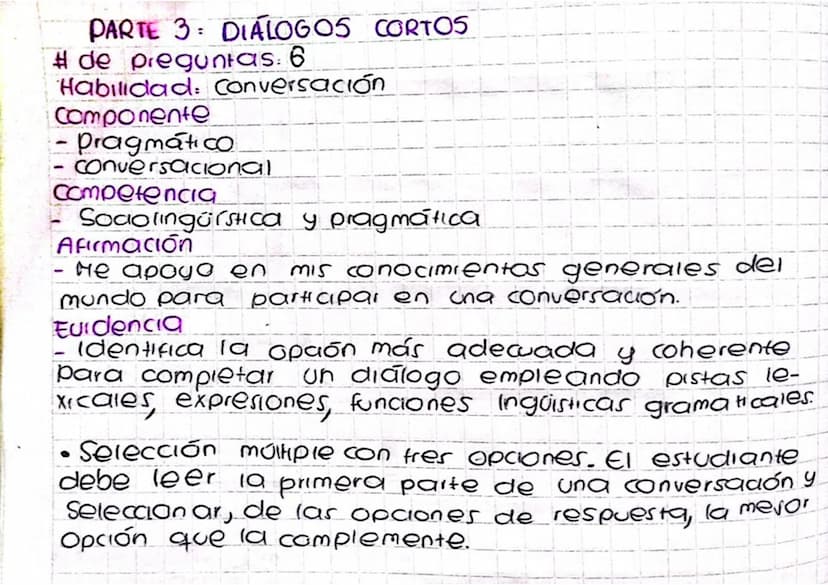 PARTE 3: DIÁLOGOS CORTOS
# de preguntas: 6
Habilidad: conversación
Componente
- pragmático
- conversacional
Competencia
- Sociolingüística y pragmática
Afirmación
- Me apoyo en mis conocimientos generales del
mundo para participar en una conversación.
Evidencia
- Identifica la opción más adecuada y coherente
para completar un diálogo empleando pistas le-
xicales, expresiones, funciones lingüisticas gramaticales
• Selección múltiple con tres opciones. El estudiante
debe leer la primera parte de una conversación y
seleccionar, de las opciones de respuesta, la mejor
opción que la complemente.